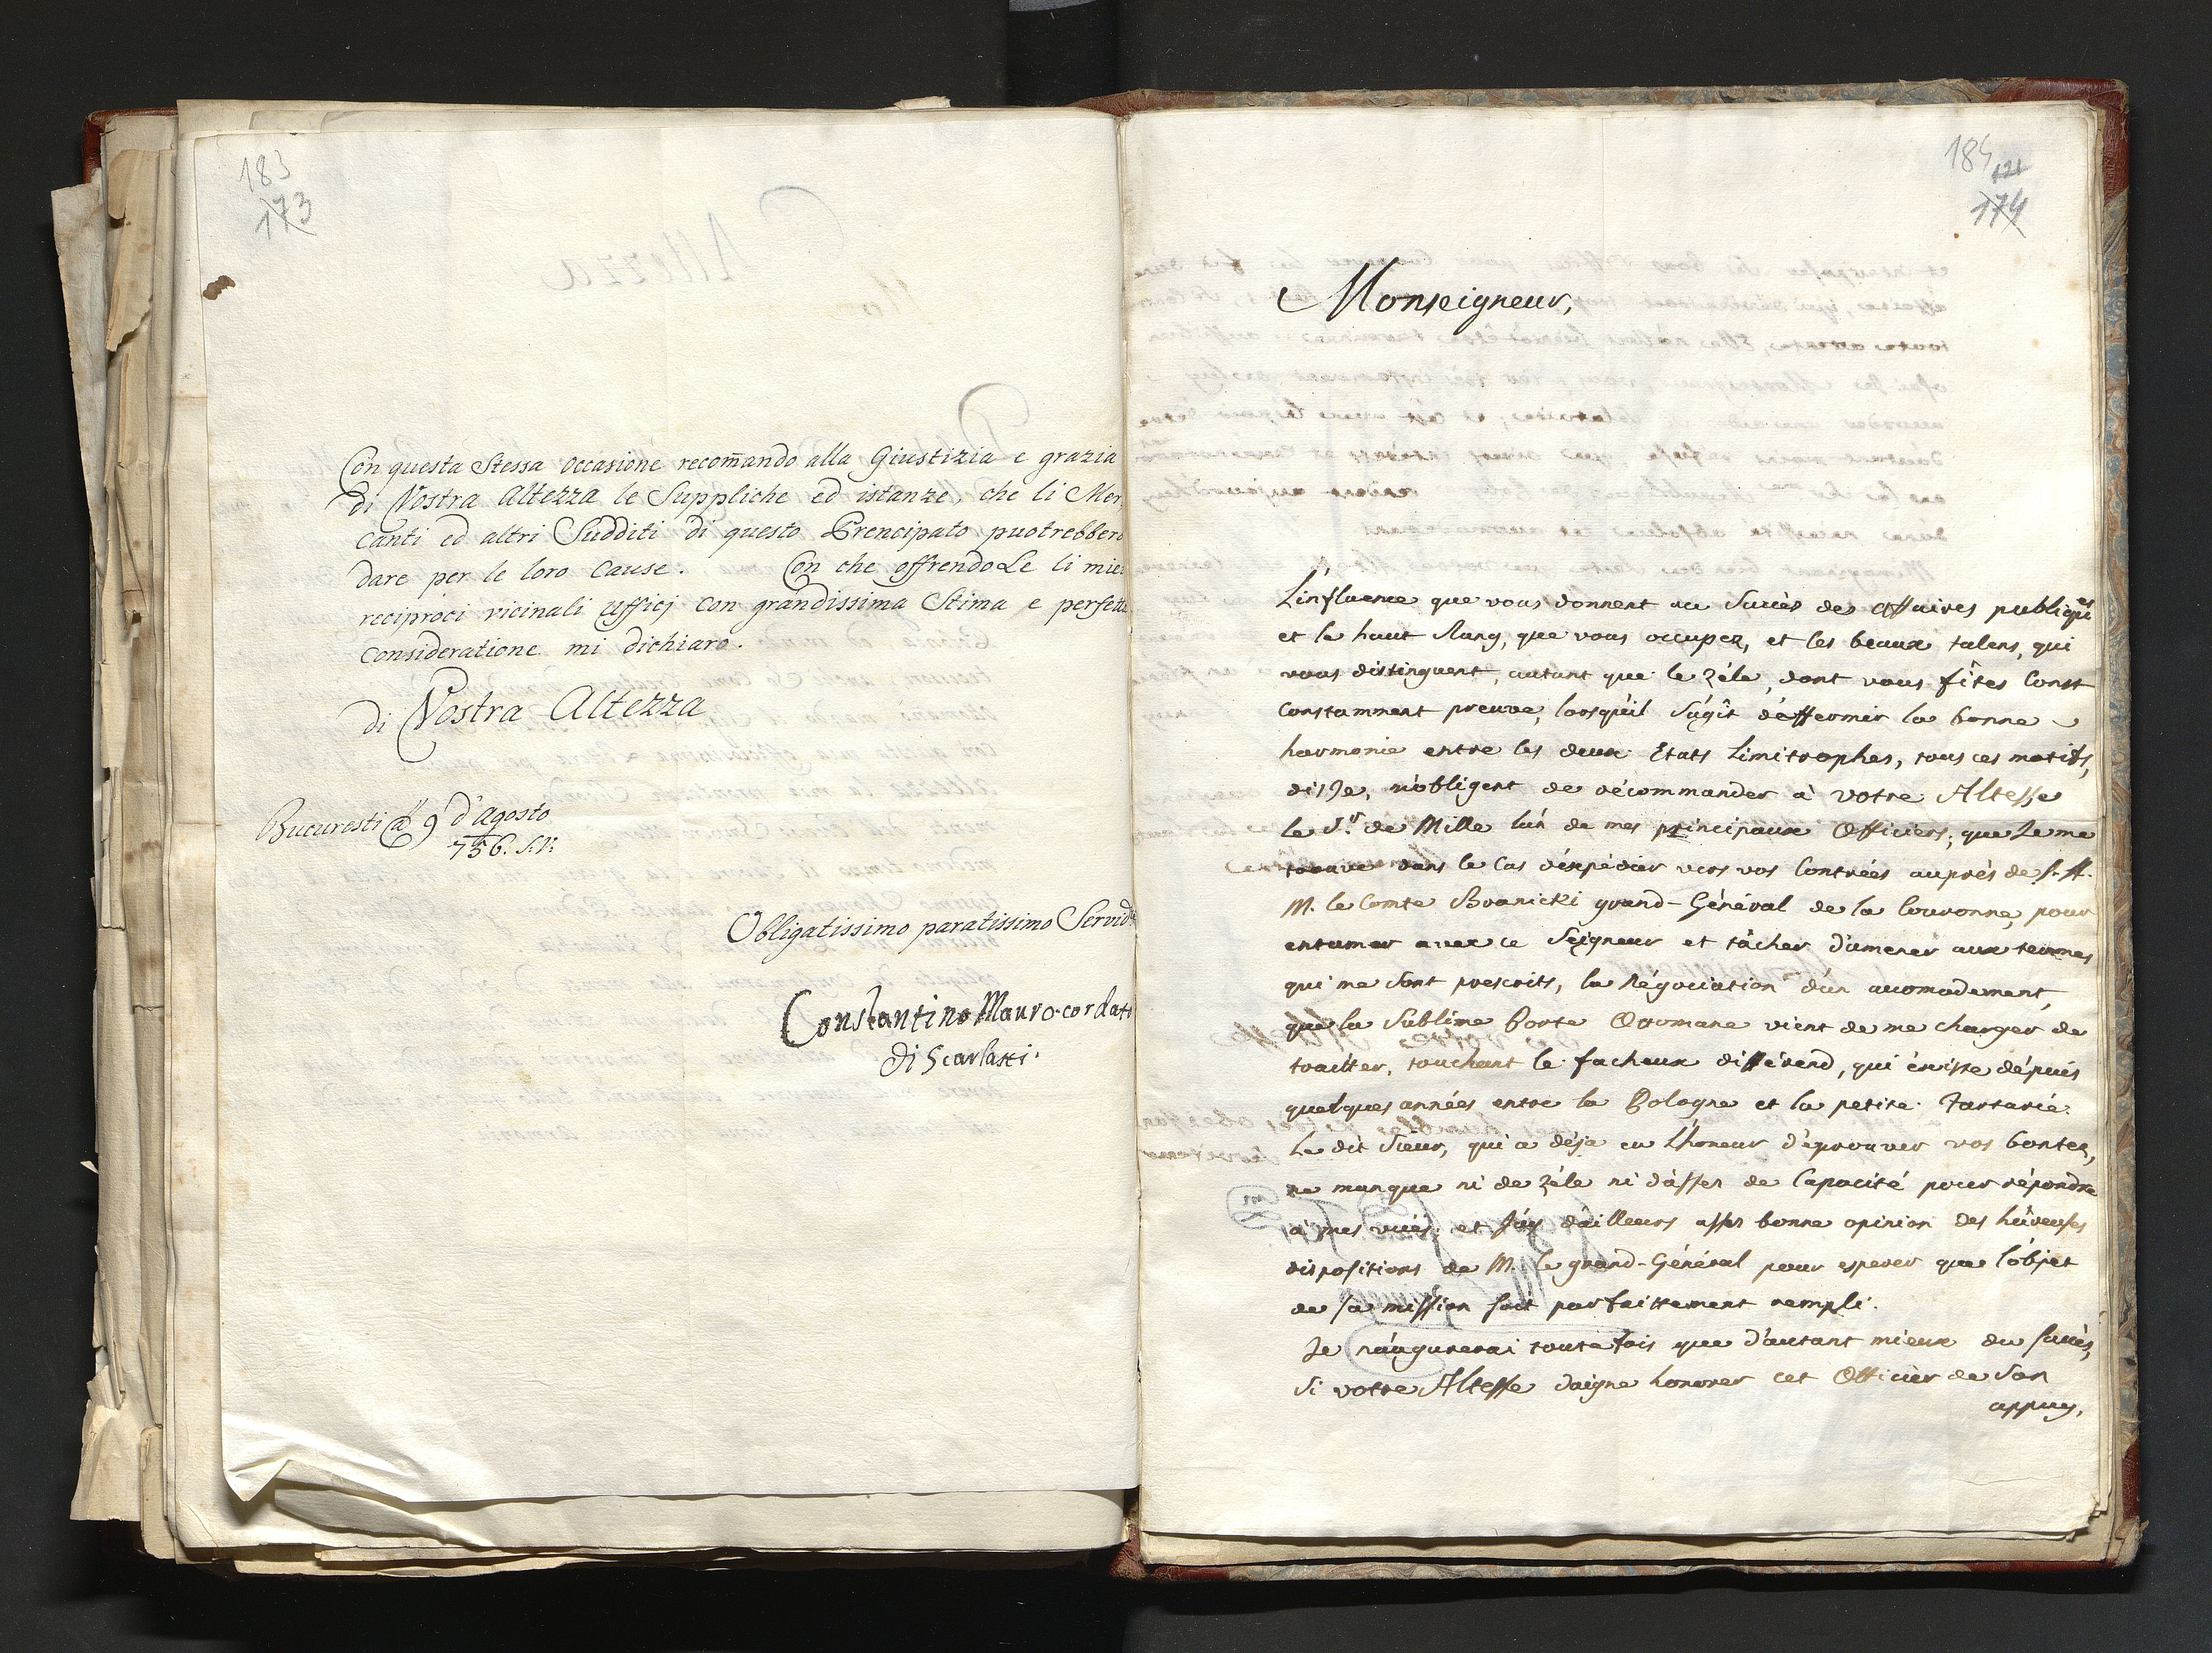 183
173
Con questa Stessa occasione recom̃ando alla Giustizia e grazia
di Vostra Altezza le Suppliche ed istanze, che li Mer,
canti ed altri Sudditi di questo Prencipato puotrebbero
dare per le loro Cause. Con che offrendoLe li miei
reciproci vicinali ufficj con grandissima Stima e perfetta
consideratione mi dichiaro.
di Vostra Altezza
Bucuresti a 9 d'Agosto
756. S.V.
Obligatissimo paratissimo Servid
Constantino Mauro-cordati
di Scarlatti.
184
174
Monseigneur,
L'influence que vous donnent au Succès des affaires publiques
et le haut Rang, que vous occupez, et les beaux talens, qui
vous distinguent, autant que le zéle, dont vous fîtes Const
constamment preuve, lorsqu'il s'agît d'éffermir la bonne
harmonie entre les deux Etats Limitrophes, tous ces motifs,
dis Je, m'obligent de récommander à votre Altesse
le S.r de Mille l'un de mes principaux Officiers, que Je me
trouve dans le Cas d'éxpédier vers vos Contrées auprès de S.E.
M. le Comte Branicki grand-Général de la Couronne, pour
entamer avec ce Seigneur et tâcher d'amener aux termes
qui me sont prescrits, la Négociation d'un accomodement,
que la Sublime Porte Ottomane vient de me charger de
traitter, touchant le facheux différend, qui éxiste dépuis
quelques années entre la Pologne et la petite Tartarie.
Le dit Sieur, qui a déja eu l'honeur d'éprouver vos bontez,
ne manque ni de zéle ni d'assez de Capacité pour répondre
à mes vuës; et J'ay d'ailleurs assez bonne opinion des hûreuses
dispositions de M. le grand-Général pour esperer que l'objet
de sa mission soit parfaittement rempli.
Je n'augurerai toute fois que d'autant mieux du succès,
Si votre Altesse daigne honorer cet Officier de Son
appuy,